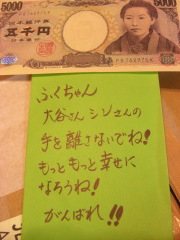 5000
日本銀行券
五千円
日本銀行
5000
ふくちゃん
大谷さん シソさんの
手を離さないでね!
もっともっと幸せに
なろうね!
がんばれ!!